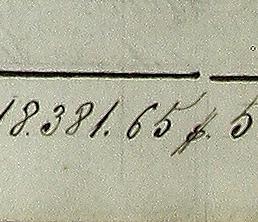 18.381.65 p. 5